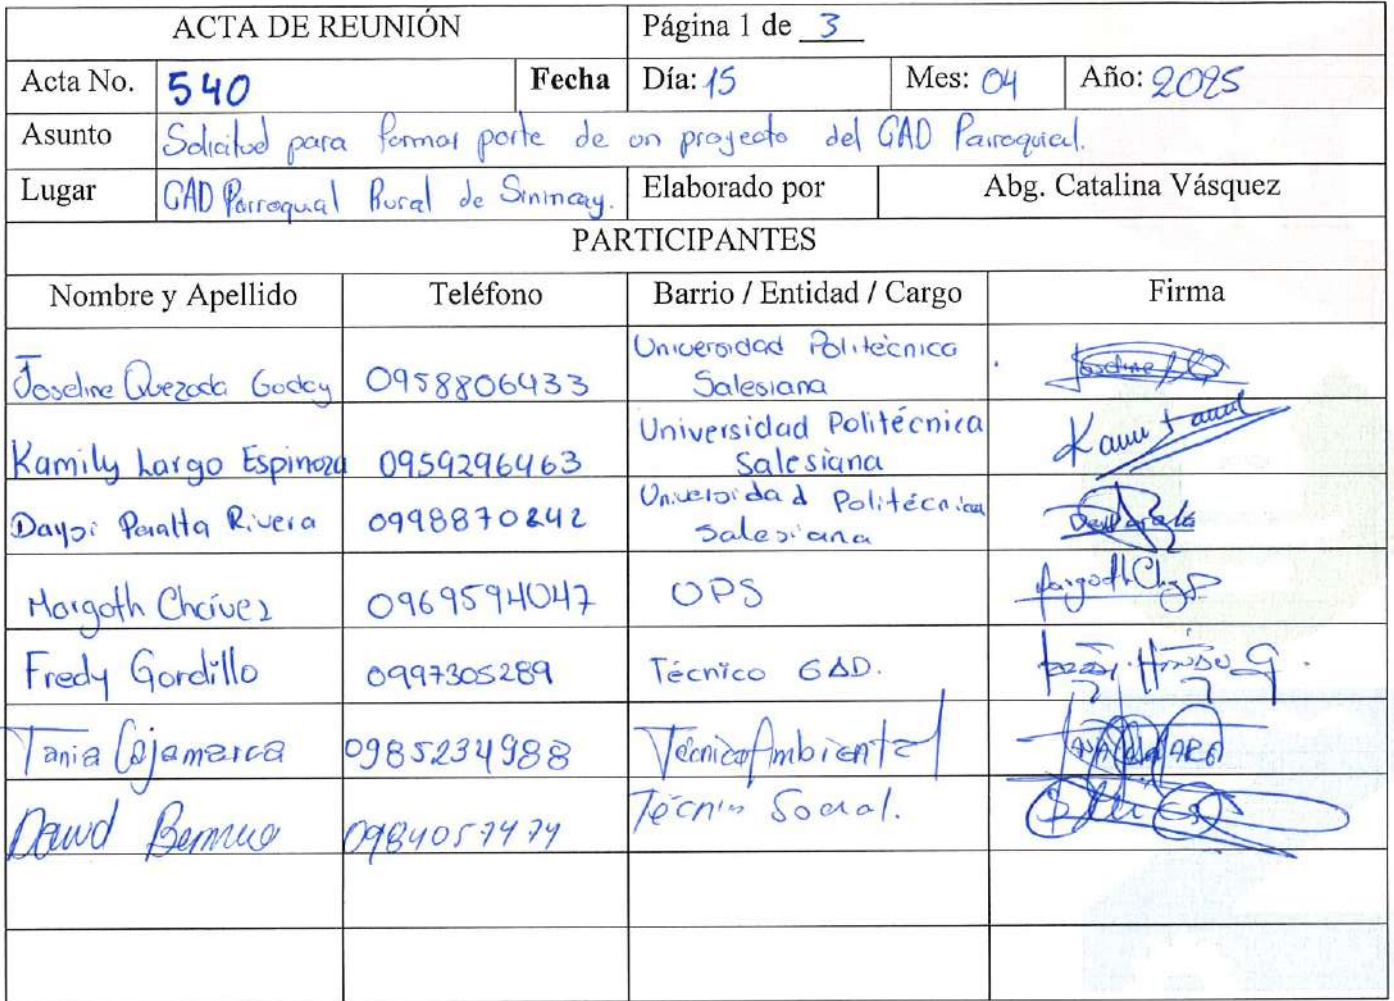 ACTA DE REUNIÓN Página 1 de 3
Acta No. 540 Fecha Día: 15 Mes: 04 Año: 2025
Asunto Solicitud para formar parte de un proyecto del GAD Parroquial.
Lugar GAD Parroquial Rural de Sinincay. Elaborado por Abg. Catalina Vásquez
PARTICIPANTES
Nombre y Apellido Teléfono Barrio / Entidad / Cargo Firma
Joseline Quezada Godoy 0958806433 Universidad Politécnica
Salesiana
Kamily Largo Espinoza 0959296463 Universidad Politécnica
Salesiana
Daysi Peralta Rivera 0998870242 Universidad Politécnica
Salesiana
Margoth Chávez 0969594047 OPS
Fredy Gordillo 0997305289 Técnico GAD.
Tania Cajamarca 0985234988 Técnico Ambiental
David 0984057474 Técnico Social.